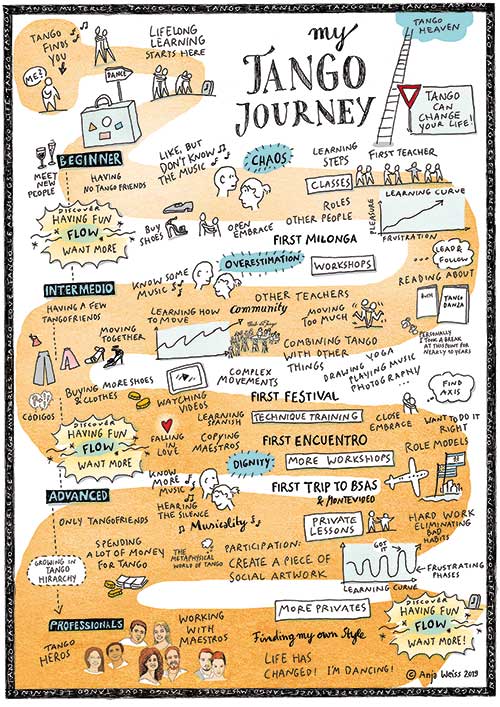 my
TANGO
JOURNEY
TANGO
FINDS
YOU
ME?
DANCE
LIFELONG
LEARNING
STARTS HERE
TANGO
HEAVEN
TANGO
CAN
CHANGE
YOUR LIFE!
BEGINNER
MEET
NEW
PEOPLE
HAVING
NO TANGOFRIENDS
LIKE, BUT
DON'T KNOW
THE MUSIC
CHAOS
LEARNING
STEPS
FIRST TEACHER
CLASSES
LEARNING CURVE
PLEASURE
FRUSTRATION
DISCOVER
HAVING FUN
FLOW
WANT MORE
BUY
SHOES
OPEN
EMBRACE
ROLES
OTHER PEOPLE
FIRST MILONGA
OVERESTIMATION
WORKSHOPS
LEAD &
FOLLOW
READING ABOUT
TANGO
DANZA
INTERMEDIO
HAVING A FEW
TANGOFRIENDS
KNOW SOME
MUSIC
OTHER TEACHERS
LEARNING HOW
TO MOVE
Community
MOVING
TOO MUCH
MOVING
TOGETHER
COMBINING TANGO
WITH OTHER
THINGS
PERSONALLY
I TOOK A BREAK
AT THIS POINT FOR
NEARLY 10 YEARS
DRAWING YOGA
PLAYING MUSIC
PHOTOGRAPHY
...
COMPLEX
MOVEMENTS
FIND
AXIS
BUYING MORE SHOES
& CLOTHES
CÓDIGOS
WATCHING
VIDEOS
FIRST FESTIVAL
LEARNING
SPANISH
TECHNIQUE TRAINING
CLOSE
EMBRACE
WANT TO DO IT
RIGHT
DISCOVER
HAVING FUN
FLOW
WANT MORE
FALLING
IN
LOVE
COPYING
MAESTROS
FIRST ENCUENTRO
ROLE MODELS
DIGNITY
MORE WORKSHOPS
KNOW
MORE
MUSIC
FIRST TRIP TO BSAS
& MONTEVIDEO
ADVANCED
ONLY TANGOFRIENDS
HEARING
THE SILENCE
Musicality
PRIVATE
LESSONS
HARD WORK
ELIMINATING
BAD
HABITS
SPENDING
A LOT OF MONEY
FOR TANGO
THE
METAPHYSICAL
WORLD OF TANGO
PARTICIPATION:
CREATE A PIECE OF
SOCIAL ARTWORK
GOT
IT
FRUSTRATING
PHASES
LEARNING CURVE
GROWING IN
TANGO
HIRARCHY
MORE PRIVATES
DISCOVER
HAVING FUN
FLOW
WANT MORE!
PROFESSIONALS
TANGO
HEROS
WORKING
WITH
MAESTROS
Finding my own Style
LIFE HAS
CHANGED! I'M DANCING!
© Anja Weiss 2019